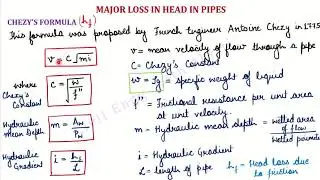 MAJOR LOSS IN HEAD IN PIPES
CHEZY'S FORMULA (hf)
This formula was proposed by French Engineer Antoine Chezy in 1775
v = c √mi
v = mean velocity of flow through a pipe
C = Chezy's Constant
where Chezy's Constant
C = √w/f"
w = ρg = specific weight of liquid
f" = Frictional resistance per unit area at unit velocity.
Hydraulic Mean Depth
m = Aw/Pw
m = Hydraulic mean depth = wetted area of flow/wetted perimeter
Hydraulic Gradient
i = hf/L
i = Hydraulic Gradient
L = length of pipe
hf = Head loss due to friction